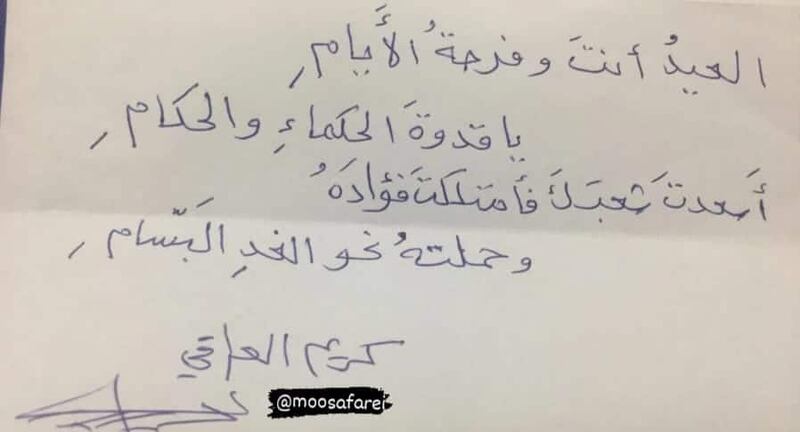 العيدُ أنتَ وفرحةُ الأَيامِ
يا قدوةَ الحكماءِ والحكامِ
أَسعدتَ شعبَكَ فأَمتلكتَ فؤادَهُ
وحملتهُ نحو الغدِ البَسّامِ
كريم العراقي
@moosafarei